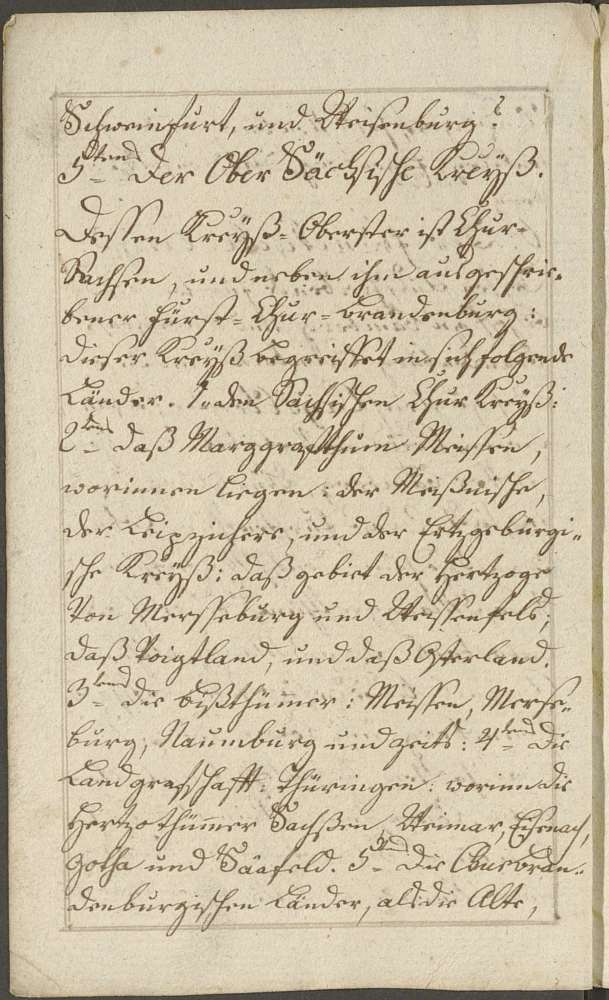 Schweinfurt, und Weisenburg?
5tens Der Ober Säcksische Kreÿß.
Dessen Kreÿß-Oberster ist Chur-
Sachsen, und neben ihm ausgeschrie-
bener Fürst-Chur-Brandenburg:
dieser Kreÿß begreiffet in sich folgende
Länder. 1. den Sächsischen Chur Kreÿß:
2tens daß Marggraffthum Meissen,
worinnen liegen: der Meißnische,
der Leipzichere, und der Ertzgebürgi-
sche Kreÿß: daß gebiet der Hertzoge
Von Mersseburg und Weissenfels,
daß Voigtland, und daß Osterland.
3tens die Bißthümmer: Meissen, Merse-
burg, Naumburg und Zeits: 4tens Die
Landgrafschafft: Thüringen: worinn die
Hertzothümmer Sachßen, Weimar, Eisenach,
Gotha und Säafeld. 5tens Die Churbran-
denburgischen Länder, als die Alte,